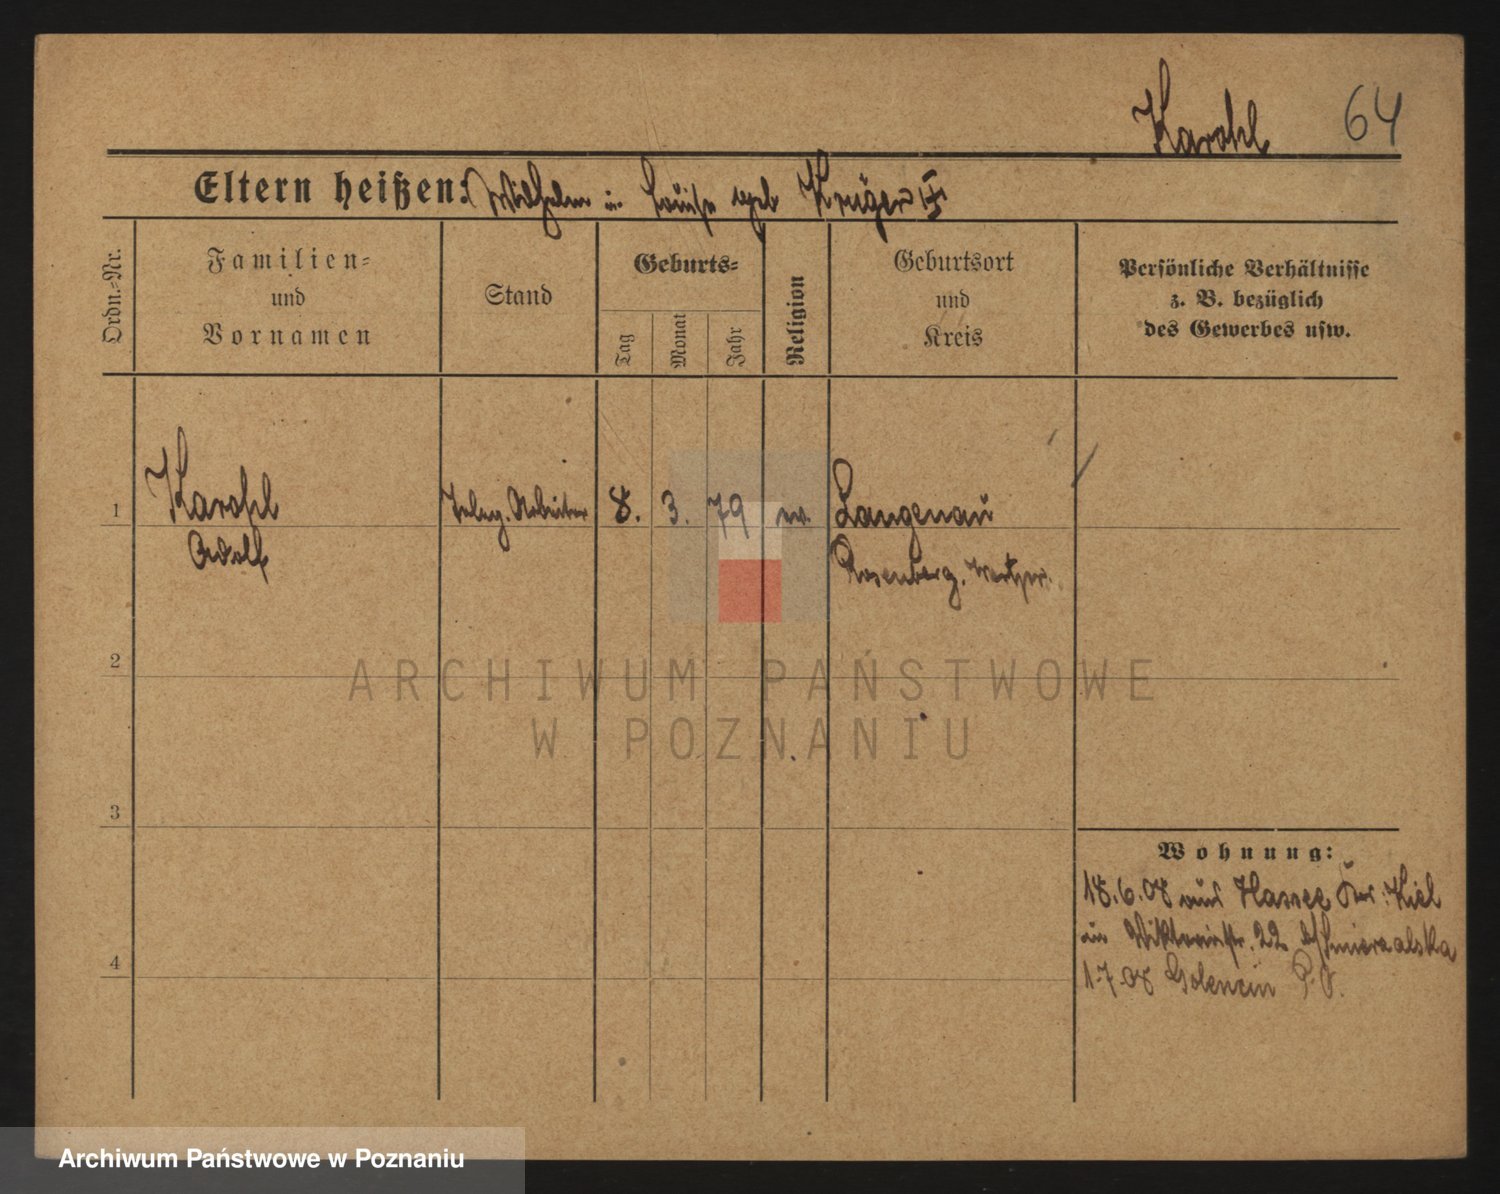 Karohl 64
Eltern heißen: Wilhelm u. Louise geb Krüger
Ordn.-Nr.
Familien-
und
Vornamen
Stand
Geburts-
Tag
Monat
Jahr
Religion
Geburtsort
und
Kreis
Persönliche Verhältnisse
z. B. bezüglich
des Gewerbes usw.
1 Karohl Teleg. Arbeiter 8. 3. 79 ev. Langenau
Adolf Rosenberg, Westpr.
2
ARCHIWUM PAŃSTWOWE
W POZNANIU
3
Wohnung:
18.6.08 aus Hassee Krs. Kiel
in Viktoriastr. 22
4
1.7.08 Golencin P. O.
Archiwum Państwowe w Poznaniu